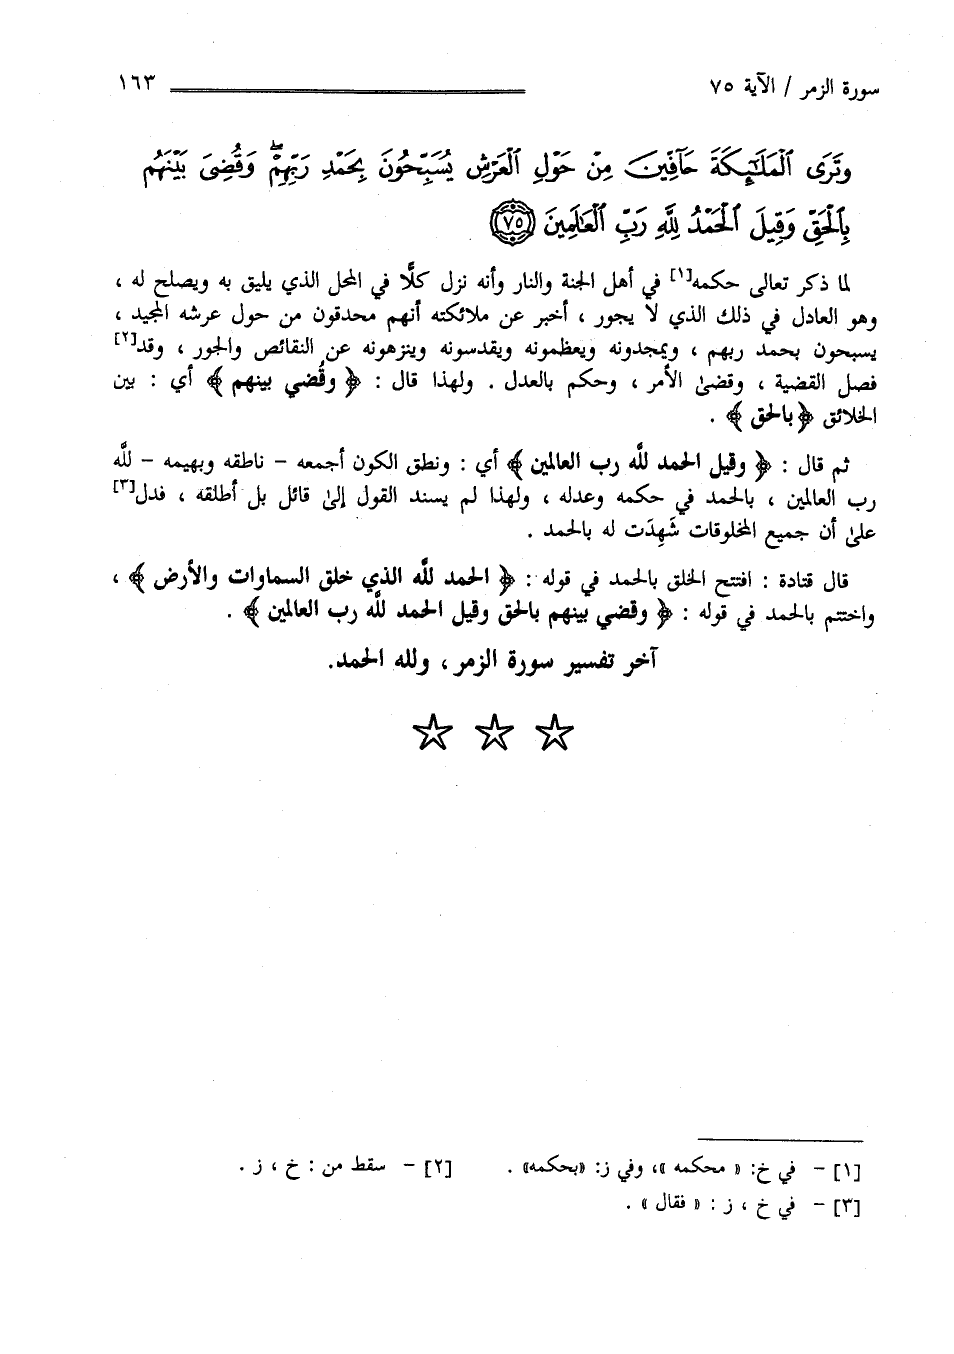 سورة الزمر / الآية ٧٥ ١٦٣
وَتَرَى ٱلْمَلَٰٓئِكَةَ حَآفِّينَ مِنْ حَوْلِ ٱلْعَرْشِ يُسَبِّحُونَ بِحَمْدِ رَبِّهِمْۖ وَقُضِيَ بَيْنَهُم
بِٱلْحَقِّ وَقِيلَ ٱلْحَمْدُ لِلَّهِ رَبِّ ٱلْعَٰلَمِينَ ٧٥
لما ذكر تعالى حكمه[١] في أهل الجنة والنار وأنه نزل كلًّا في المحل الذي يليق به ويصلح له ،
وهو العادل في ذلك الذي لا يجور ، أخبر عن ملائكته أنهم محدقون من حول عرشه المجيد ،
يسبحون بحمد ربهم ، ويمجدونه ويعظمونه ويقدسونه وينزهونه عن النقائص والجور ، وقد[٢]
فصل القضية ، وقضىٰ الأمر ، وحكم بالعدل . ولهذا قال : ﴿ وقُضي بينهم ﴾ أي : بين
الخلائق ﴿ بالحق ﴾ .
ثم قال : ﴿ وقيل الحمد للَّه رب العالمين ﴾ أي : ونطق الكون أجمعه – ناطقه وبهيمه – للَّه
رب العالمين ، بالحمد في حكمه وعدله ، ولهذا لم يسند القول إلىٰ قائل بل أطلقه ، فدل[٣]
علىٰ أن جميع المخلوقات شَهِدَت له بالحمد .
قال قتادة : افتتح الخلق بالحمد في قوله : ﴿ الحمد للَّه الذي خلق السماوات والأرض ﴾ ،
واختتم بالحمد في قوله : ﴿ وقضي بينهم بالحق وقيل الحمد للَّه رب العالمين ﴾ .
آخر تفسير سورة الزمر ، ولله الحمد.
[١] – في خ: « محكمه »، وفي ز: «بحكمه» . [٢] – سقط من : خ ، ز .
[٣] – في خ ، ز : « فقال » .